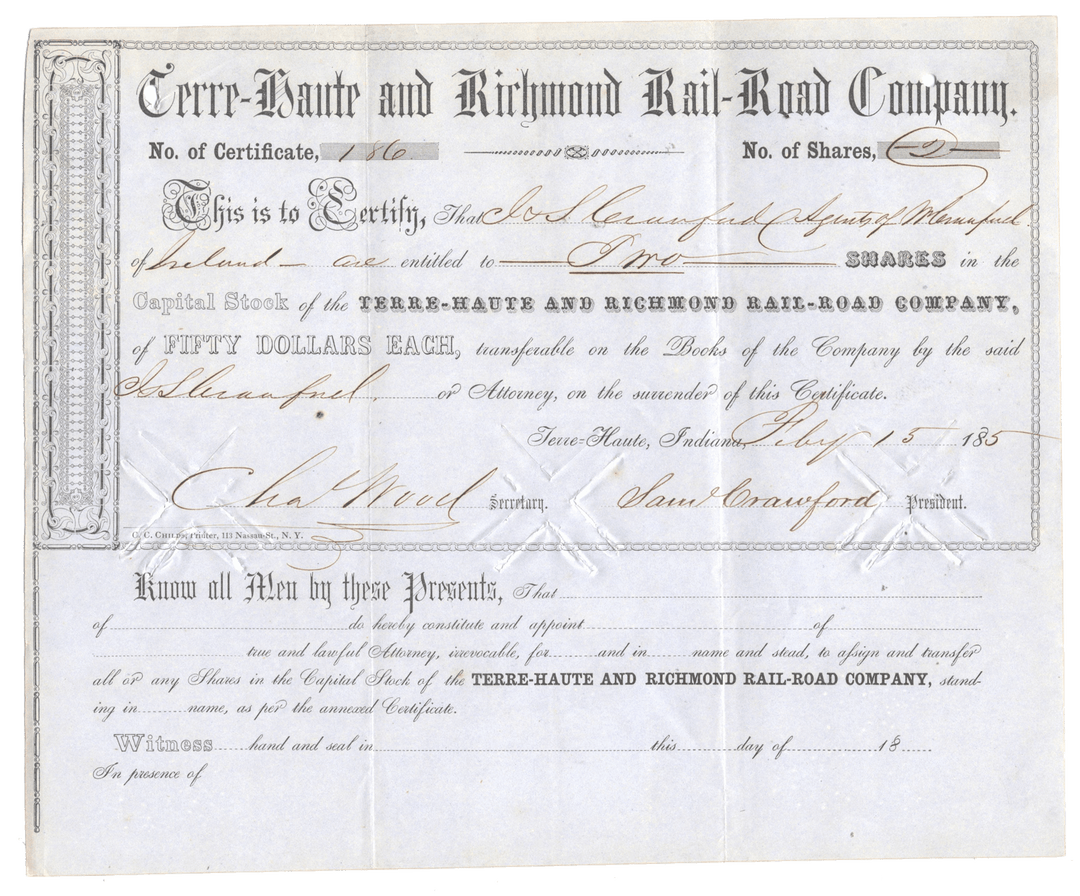 Terre-Haute and Richmond Rail-Road Company.
No. of Certificate, 186 No. of Shares, 2
This is to Certify, That J & S Crawford Agents of W Crawford
of Ireland are entitled to Two SHARES in the
Capital Stock of the TERRE-HAUTE AND RICHMOND RAIL-ROAD COMPANY,
of FIFTY DOLLARS EACH, transferable on the Books of the Company by the said
J & S Crawford. or Attorney, on the surrender of this Certificate.
Terre-Haute, Indiana, Feby 15 185
Chas Wood Secretary. Saml Crawford President.
C. C. CHILDS, Printer, 113 Nassau-St., N. Y.
Know all Men by these Presents, That
of do hereby constitute and appoint of
true and lawful Attorney, irrevocable, for and in name and stead, to assign and transfer
all or any Shares in the Capital Stock of the TERRE-HAUTE AND RICHMOND RAIL-ROAD COMPANY, stand-
ing in name, as per the annexed Certificate.
Witness hand and seal in this day of 18
In presence of